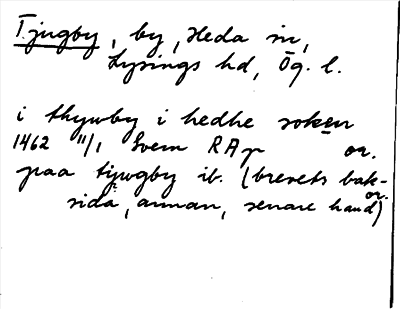 Tjugby, by, Heda sn,
Lysings hd, Ög. l.
i thywby i hedhe soken
1462 11/1 Svem RAp or.
paa tywgby ib. (brevets bak-
sida, annan, senare hand) or.